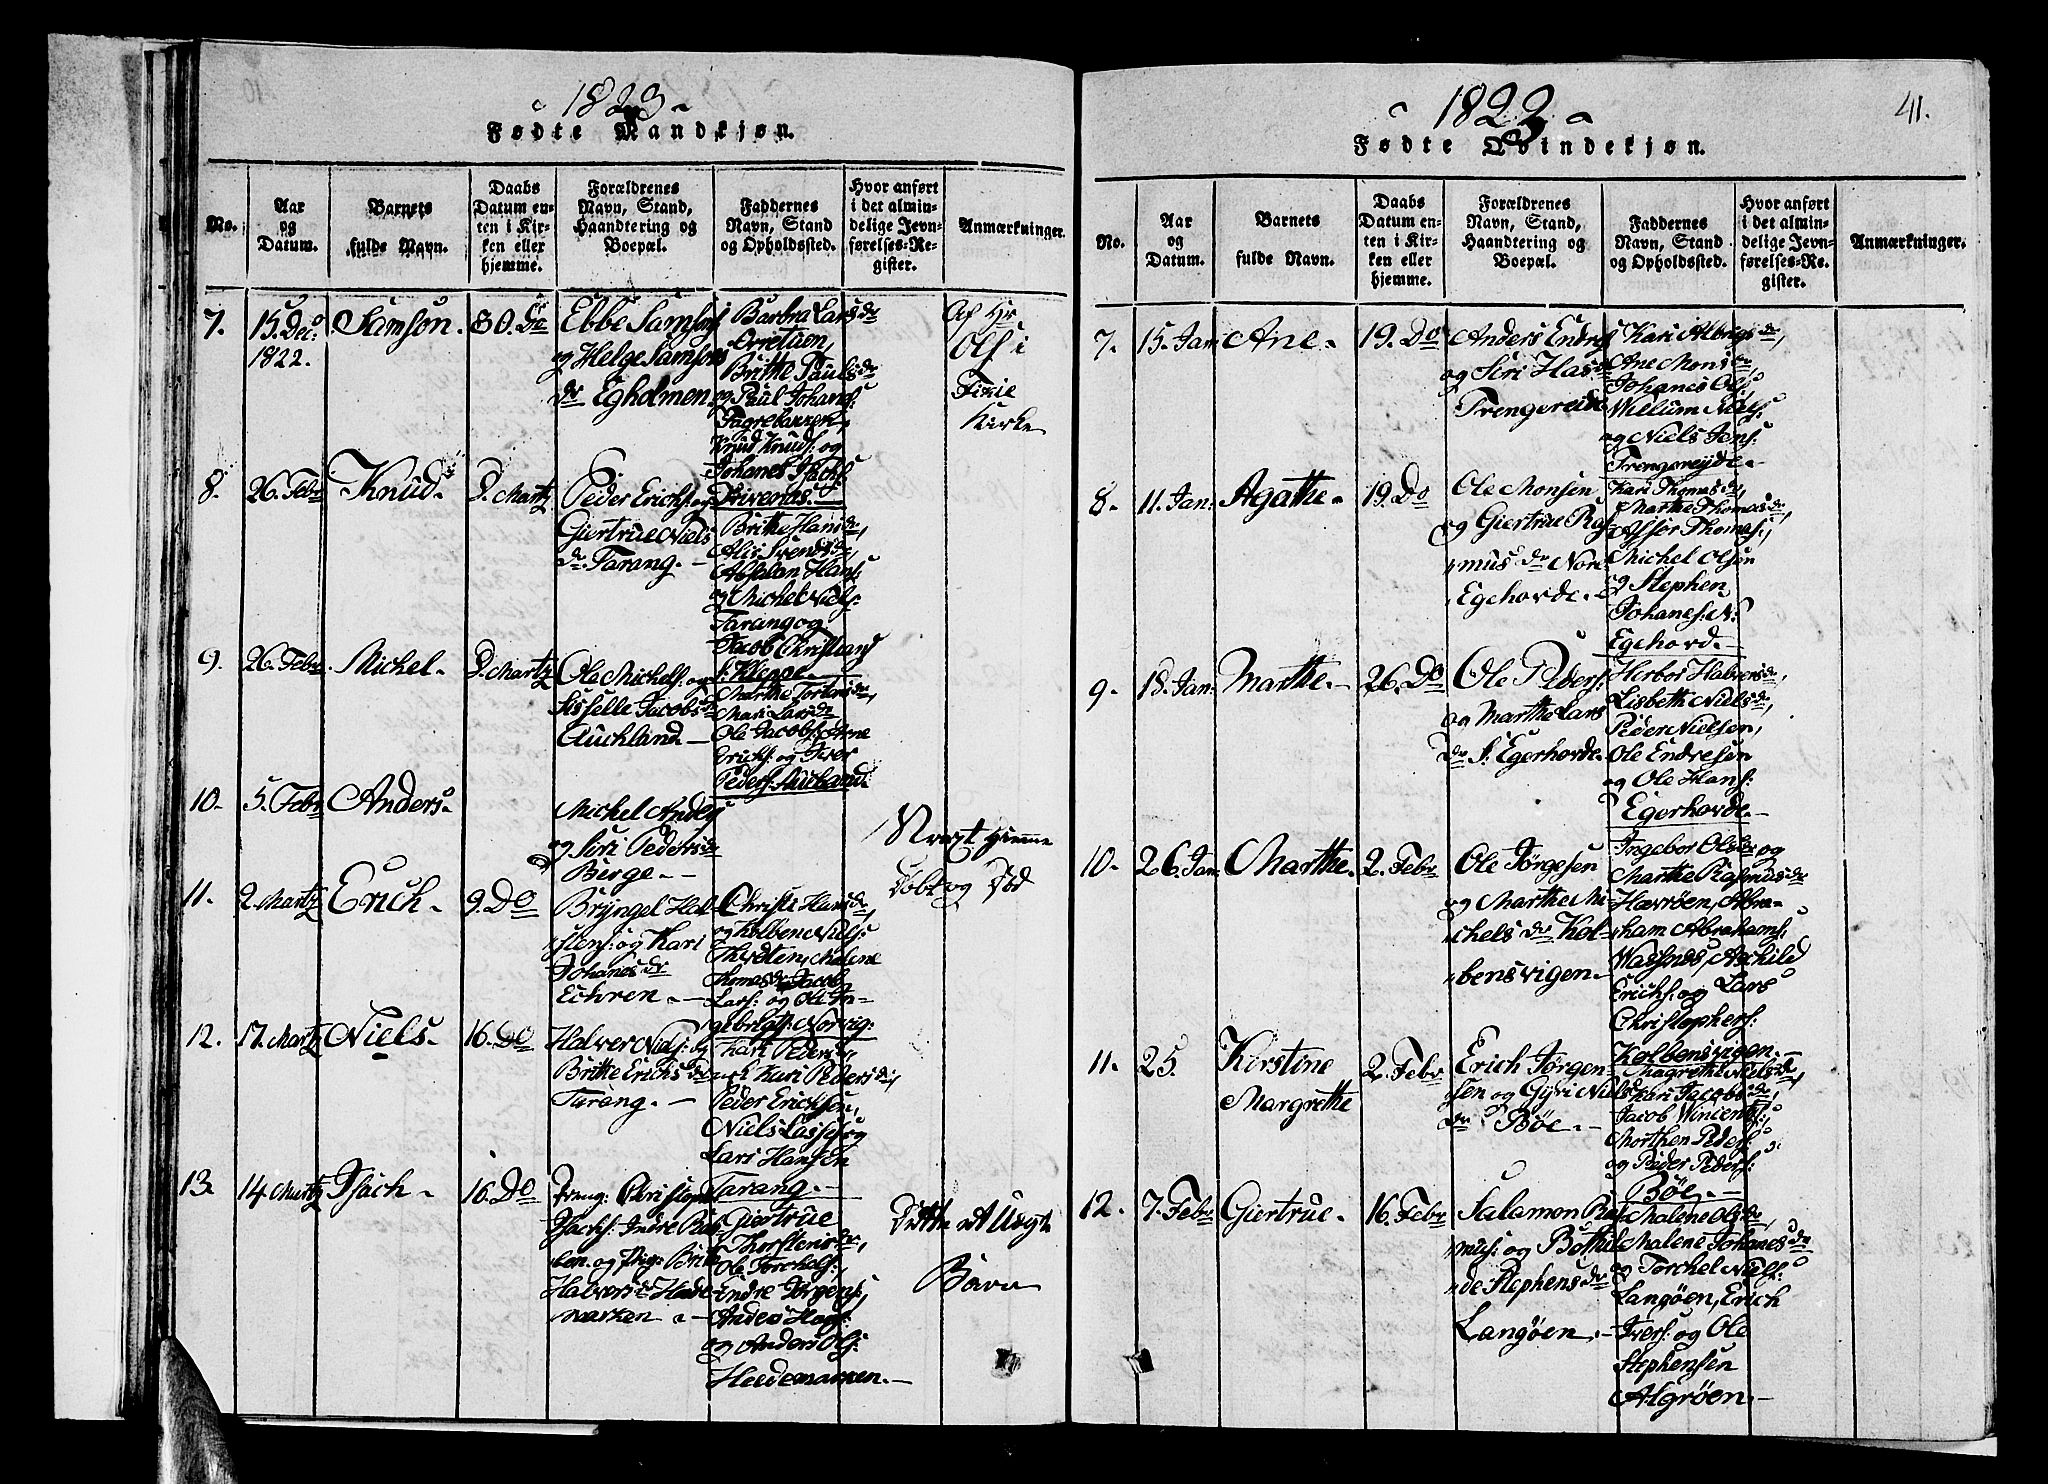 1823
Fødte Mandkjøn.
No.
Aar
og
Datum.
Barnets
fulde Navn.
Daabs
Datum en-
ten i Kir-
ken eller
hjemme.
Forældrenes
Navn, Stand,
Haandtering og
Boepæl.
Faddernes
Navn, Stand
og Opholdssted.
Hvor anført
i det almin-
delige Jevn-
førelses-Re-
gister.
Anmærkninger.
7.
15. Dec:
1822.
Samson.
30. Do
Ebbe Sams:
og Helge Samsons
dr Egholmen.
Barbra Larsdr
Orretuen,
Britte Paulsdr
og Paul Johans:
Fagrebakken,
Knud Knuds: og
Johanes
Af Hr
Ols i
Kirke
8.
26. Febr
Knud.
9. Martz
Peder Erichs: og
Giertrue Niels
dr. Tarang. -
Britthe Hansdr,
Alis Svendsdr,
Absalon Hans:
og Michel Niels:
Tarang og
Jacob Christians
s: Kleppe.
9.
26. Febr.
Michel.
9. Martz
Ole Michels: og
Sisselle Jacobsdr
Auchland. -
Marthe Torbiørsdr,
Mari Larsdr
Ole Jacobs: Arne
Erichs: og Iver
Peders: Aucland.
10.
5. Febr
Anders.
Michel Anders
og Siri Pedersdr
Berge. -
Hiemme
Døbt og Død
11.
2. Martz
Erich.
9. Do
Bryngel Hel-
stens: og Kari
Johanesdr
Echren. -
Christi Hansdr,
og Kolben Niels:
Malene
Thomasdr Jacob
Lars: og Ole In-
gebrigts: Norvig:
12.
17. Martz
Niels.
16. Do
Halver Niels: og
Britte Erichsdr
Tarang. -
Kari Pedersdr,
Kari Pedersdr,
Peder Erichsen,
Niels Lasses: og
Lars Hansen
Tarang. -
13.
14. Martz
Isach.
16. Do
Christophr
Isachs: Indre
og Pige Britte
Halversdr Heede-
marken. -
Giertrue
Thorstensdr,
Ole Torchels:
Endre Jørgens:,
Anders Hans:
og Anders Ols:
Heedemarken. -
Dette et Uægte
Barn
1823
41.
Fødte Qvindekjøn.
No.
Aar
og
Datum.
Barnets
fulde Navn.
Daabs
Datum en-
ten i Kir-
ken eller
hjemme.
Forældrenes
Navn, Stand,
Haandtering og
Boepæl.
Faddernes
Navn, Stand
og Opholdssted.
Hvor anført
i det almin-
delige Jevn-
førelses-Re-
gister.
Anmærkninger.
7.
15. Jan
Ane.
19. Do
Anders Endres
og Siri Hansdr
Trengereide
Kari
Ane Monsdr,
Johanes Ols:
Willum Niels:
og Niels Jens:
Trengereyde. -
8.
11. Jan:
Agathe.
19. Do
Ole Monsen
og Giertrue Ras-
mus dr Nore
Egehorde. -
Kari Thomasdr,
Marthe Thomasdr
Asser Thomas:,
Michel Olsen
og Stephen
Johanes: N:
Egehord. -
9.
18. Jan:
Marthe. -
26. Do
Ole Peders:
og Marthe Lars
dr S: Egerhorde.
Herbor Halversdr,
Lisbeth Nielsdr,
Peder Nielsen,
Ole Endresen
og Ole Hans:
Egerhorde. -
10.
26. Jan
Marthe.
2. Febr
Ole Jørgesen
og Marthe Mi-
chelsdr Kol-
bensvigen. -
Ingebor Olsdr og
Marthe Rasmusdr
Hævrøen, Abra-
ham Abrahams:
Wassnes, Aschild
Erichs: og Lars
Christophers:
Kolbensvigen -
11.
25.
Kirstine
Margrethe
2. Febr
Erich Jørgen-
sen og Gyri Niels
dr Bøe. -
Magrethe Nielsdr,
Kari Jacobsdr
Jacob Wincents:,
Morthen Peders:
og Peder Peders:
Bøe. -
12.
7. Febr
Giertrue.
16. Febr
Salamon Ras-
mus: og Bothil-
de Stephensdr
Langøen. -
Malene Olsdr,
Malene Johanesdr
og Torchel Niels:
Langøen, Erich
Ivers: og Ole
Stephensen
Algrøen. -